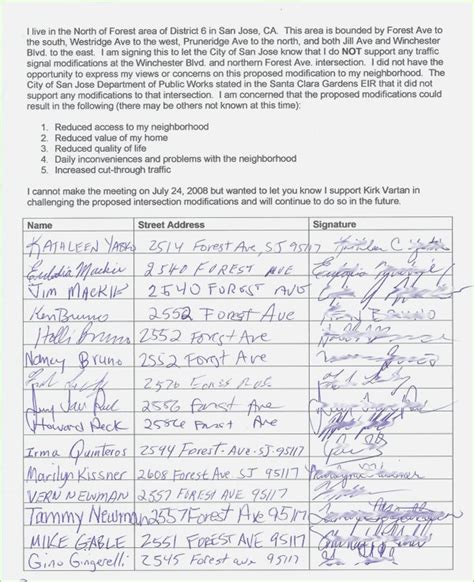 I live in the North of Forest area of District 6 in San Jose, CA. This area is bounded by Forest Ave to
the south, Westridge Ave to the west, Pruneridge Ave to the north, and both Jill Ave and Winchester
Blvd. to the east. I am signing this to let the City of San Jose know that I do NOT support any traffic
signal modifications at the Winchester Blvd. and northern Forest Ave. intersection. I did not have the
opportunity to express my views or concerns on this proposed modification to my neighborhood. The
City of San Jose Department of Public Works stated in the Santa Clara Gardens EIR that it did not
support any modifications to that intersection. I am concerned that the proposed modifications could
result in the following (there may be others not known at this time):
1. Reduced access to my neighborhood
2. Reduced value of my home
3. Reduced quality of life
4. Daily inconveniences and problems with the neighborhood
5. Increased cut-through traffic
I cannot make the meeting on July 24, 2008 but wanted to let you know I support Kirk Vartan in
challenging the proposed intersection modifications and will continue to do so in the future.
Name Street Address Signature
KATHLEEN 2514 Forest Ave, SJ 95117
Eulodia Mackie 2540 FOREST AVE
JIM MACKIE 2540 FOREST AVE
Ken Bruno 2552 Forest Ave
Holli Bruno 2552 Forest Ave
Nancy Bruno 2552 Forest Ave
2556
2556 Forest Ave
Howard Peck 2586 Forest Ave
Irma Quinteros 2594 Forest Ave-SJ-95117
Marilyn Kissner 2608 Forest Ave SJ 95117
VERN NEWMAN 2557 FOREST AVE SJ 95117
Tammy Newman 2557 Forest Ave 95117
MIKE GABLE 2551 FOREST AVE 95117
Gino Gingerelli 2545 FOREST AVE 95117